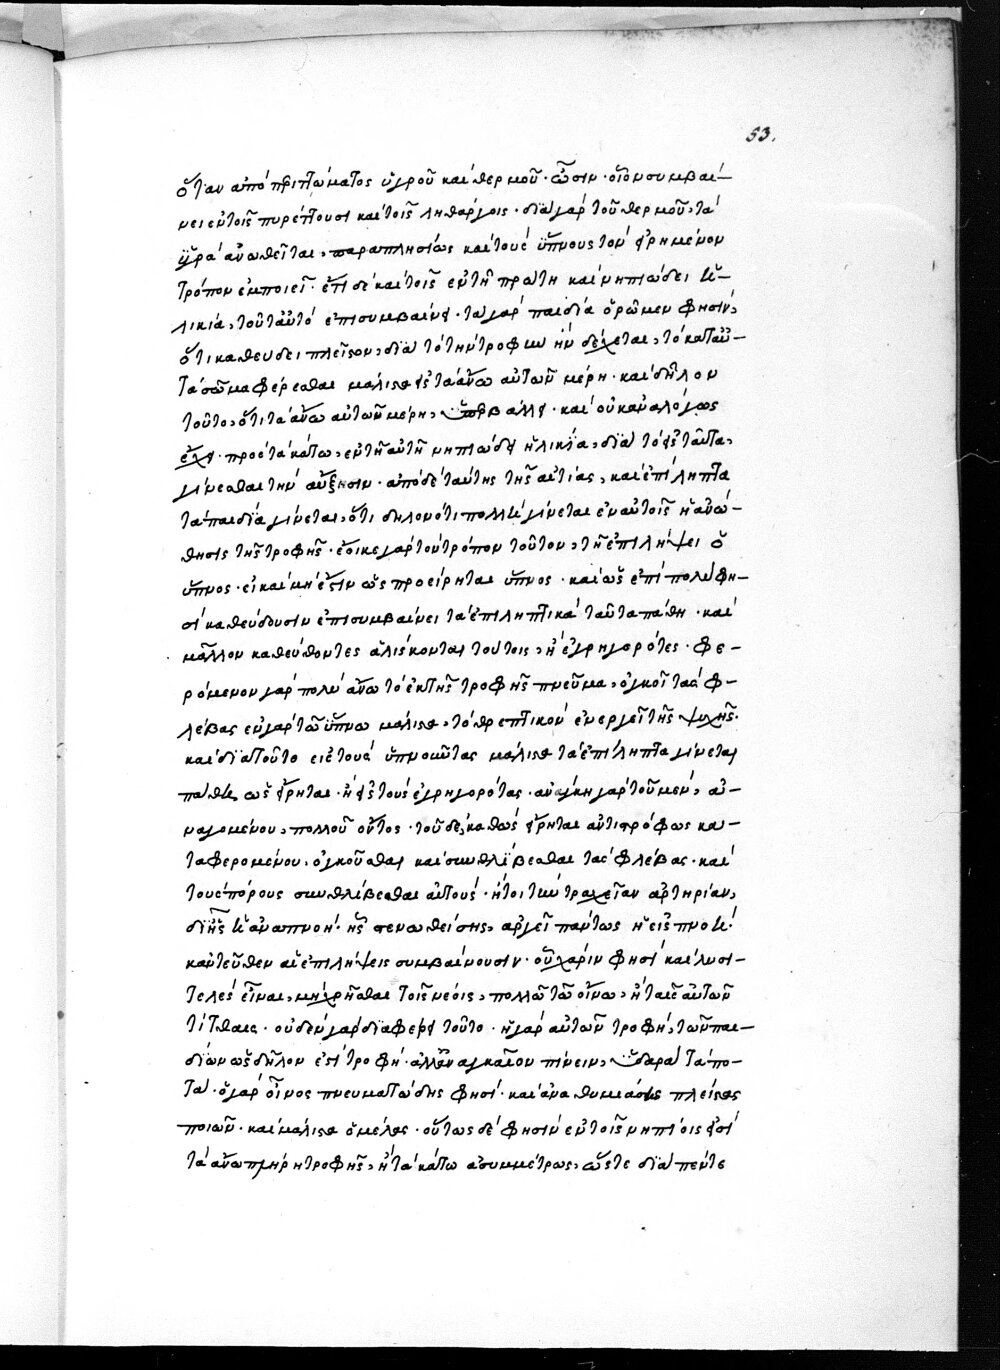 53.
ὅταν ἀπὸ περιττώματος ὑγροῦ καὶ θερμοῦ · ὦσιν · οἷον συμβαί–
νει ἐν τοῖς πυρέττουσι καὶ τοῖς ληθάργοις · διὰ γὰρ τοῦ θερμοῦ, τὰ
ὑγρὰ ἀνωθεῖται, παραπλησίως καὶ τοὺς ὕπνους τὸν εἰρημένον
τρόπον ἐμποιεῖ · ἔτι δὲ καὶ τοῖς ἐν τῇ πρώτῃ καὶ νηπιώδει ἡ–
λικία, τοῦτ αὐτὸ ἐπισυμβαίνει · τὰ γὰρ παιδία ὁρῶμεν φησὶν,
ὅτι καθεύδει πλεῖστον, διὰ τὸ τὴν τροφὴν ἣν δέχεται, τὸ κατ αὐ–
τὰ σῶμα φέρεσθαι μάλιστα εἰς τὰ ἄνω αὐτῶν μέρη · καὶ δῆλον
τοῦτο, ὅτι τὰ ἄνω αὐτῶν μέρη, ὑπερβάλλει · καὶ οὐκ ἀναλόγως
ἔχει · πρὸς τὰ κάτω, ἐν τῇ αὐτῇ νηπιώδει ἡλικία, διὰ τὸ εἰς ταῦτα,
γίνεσθαι τὴν αὔξησιν · ἀπὸ δὲ ταύτης τῆς αἰτίας, καὶ ἐπίληπτα
τὰ παιδία γίνεται, ὅτι δηλονότι πολλὴ γίνεται ἐν αὐτοῖς ἡ ἀνώ–
θησις τῆς τροφῆς · ἔοικε γὰρ τὸν τρόπον τοῦτον, τῇ ἐπιλήψει ὁ
ὕπνος · εἰ καὶ μὴ ἔστιν ὡς προείρηται ὕπνος · καὶ ὡς ἐπὶ πολὺ φη–
σὶ καθεύδουσιν ἐπισυμβαίνει τὰ ἐπιληπτικὰ ταῦτα πάθη · καὶ
μᾶλλον καθεύδοντες ἁλίσκονται τούτοις, ἢ ἐγρηγορότες · φε–
ρόμενον γὰρ πολὺ ἄνω τὸ ἐκ τῆς τροφῆς πνεῦμα, ὀγκοῖ τὰς φ–
λέβας ἐν γὰρ τῶ ὕπνω μάλιστα, τὸ θρεπτικὸν ἐνεργεῖ τῆς ψυχῆς ·
καὶ διὰ τοῦτο εἰς τοὺς ὑπνοῦντας μάλιστα τὰ ἐπίληπτα γίνεται
πάθη, ὡς εἴρηται · ἢ εἰς τοὺς ἐγρηγορότας · ἀνάγκη γὰρ τοῦ μὲν, ἀ–
ναγομένου, πολλοῦ ὄντος · τοῦ δὲ, καθὼς εἴρηται ἀντιστρόφως κα–
ταφερομένου, ὀγκοῦσθαι καὶ συνθλίβεσθαι τὰς φλέβας · καὶ
τοὺς πόρους συνθλίβεσθαι αὐτοὺς · ἤτοι τὴν τραχεῖαν ἀρτηρίαν,
δι ἧς ἡ ἀναπνοή · ἧς στενωθείσης, ἀργεῖ πάντως ἡ εἰσπνοή ·
κἀντεῦθεν αἱ ἐπιλήψεις συμβαίνουσιν · οὗ χάριν φησὶ καὶ λυσι–
τελὲς εἶναι, μὴ χρῆσθαι τοῖς νέοις, πολλῶ τῶ οἴνω, ἢ ταῖς αὐτῶν
τίτθαις · οὐδὲν γὰρ διαφέρει τοῦτο · ἡ γὰρ αὐτῶν τροφὴ, τῶν παι–
δίων ὡς δῆλον ἐστὶ τροφή · ἀλλ' ἀναγκαῖον πίνειν, ὑδαρᾶ τὰ πο–
τὰ · ὁ γὰρ οἶνος πνευματώδης φησὶ · καὶ ἀναθυμιάσεις πλείστας
ποιῶν · καὶ μάλιστα ὁ μέλας · οὕτως δὲ φησὶν ἐν τοῖς νηπίοις εἰσὶ
τὰ ἄνω πλήρη τροφῆς, ἢ τὰ κάτω ἀσυμμέτρως, ὥστε διὰ πέντε